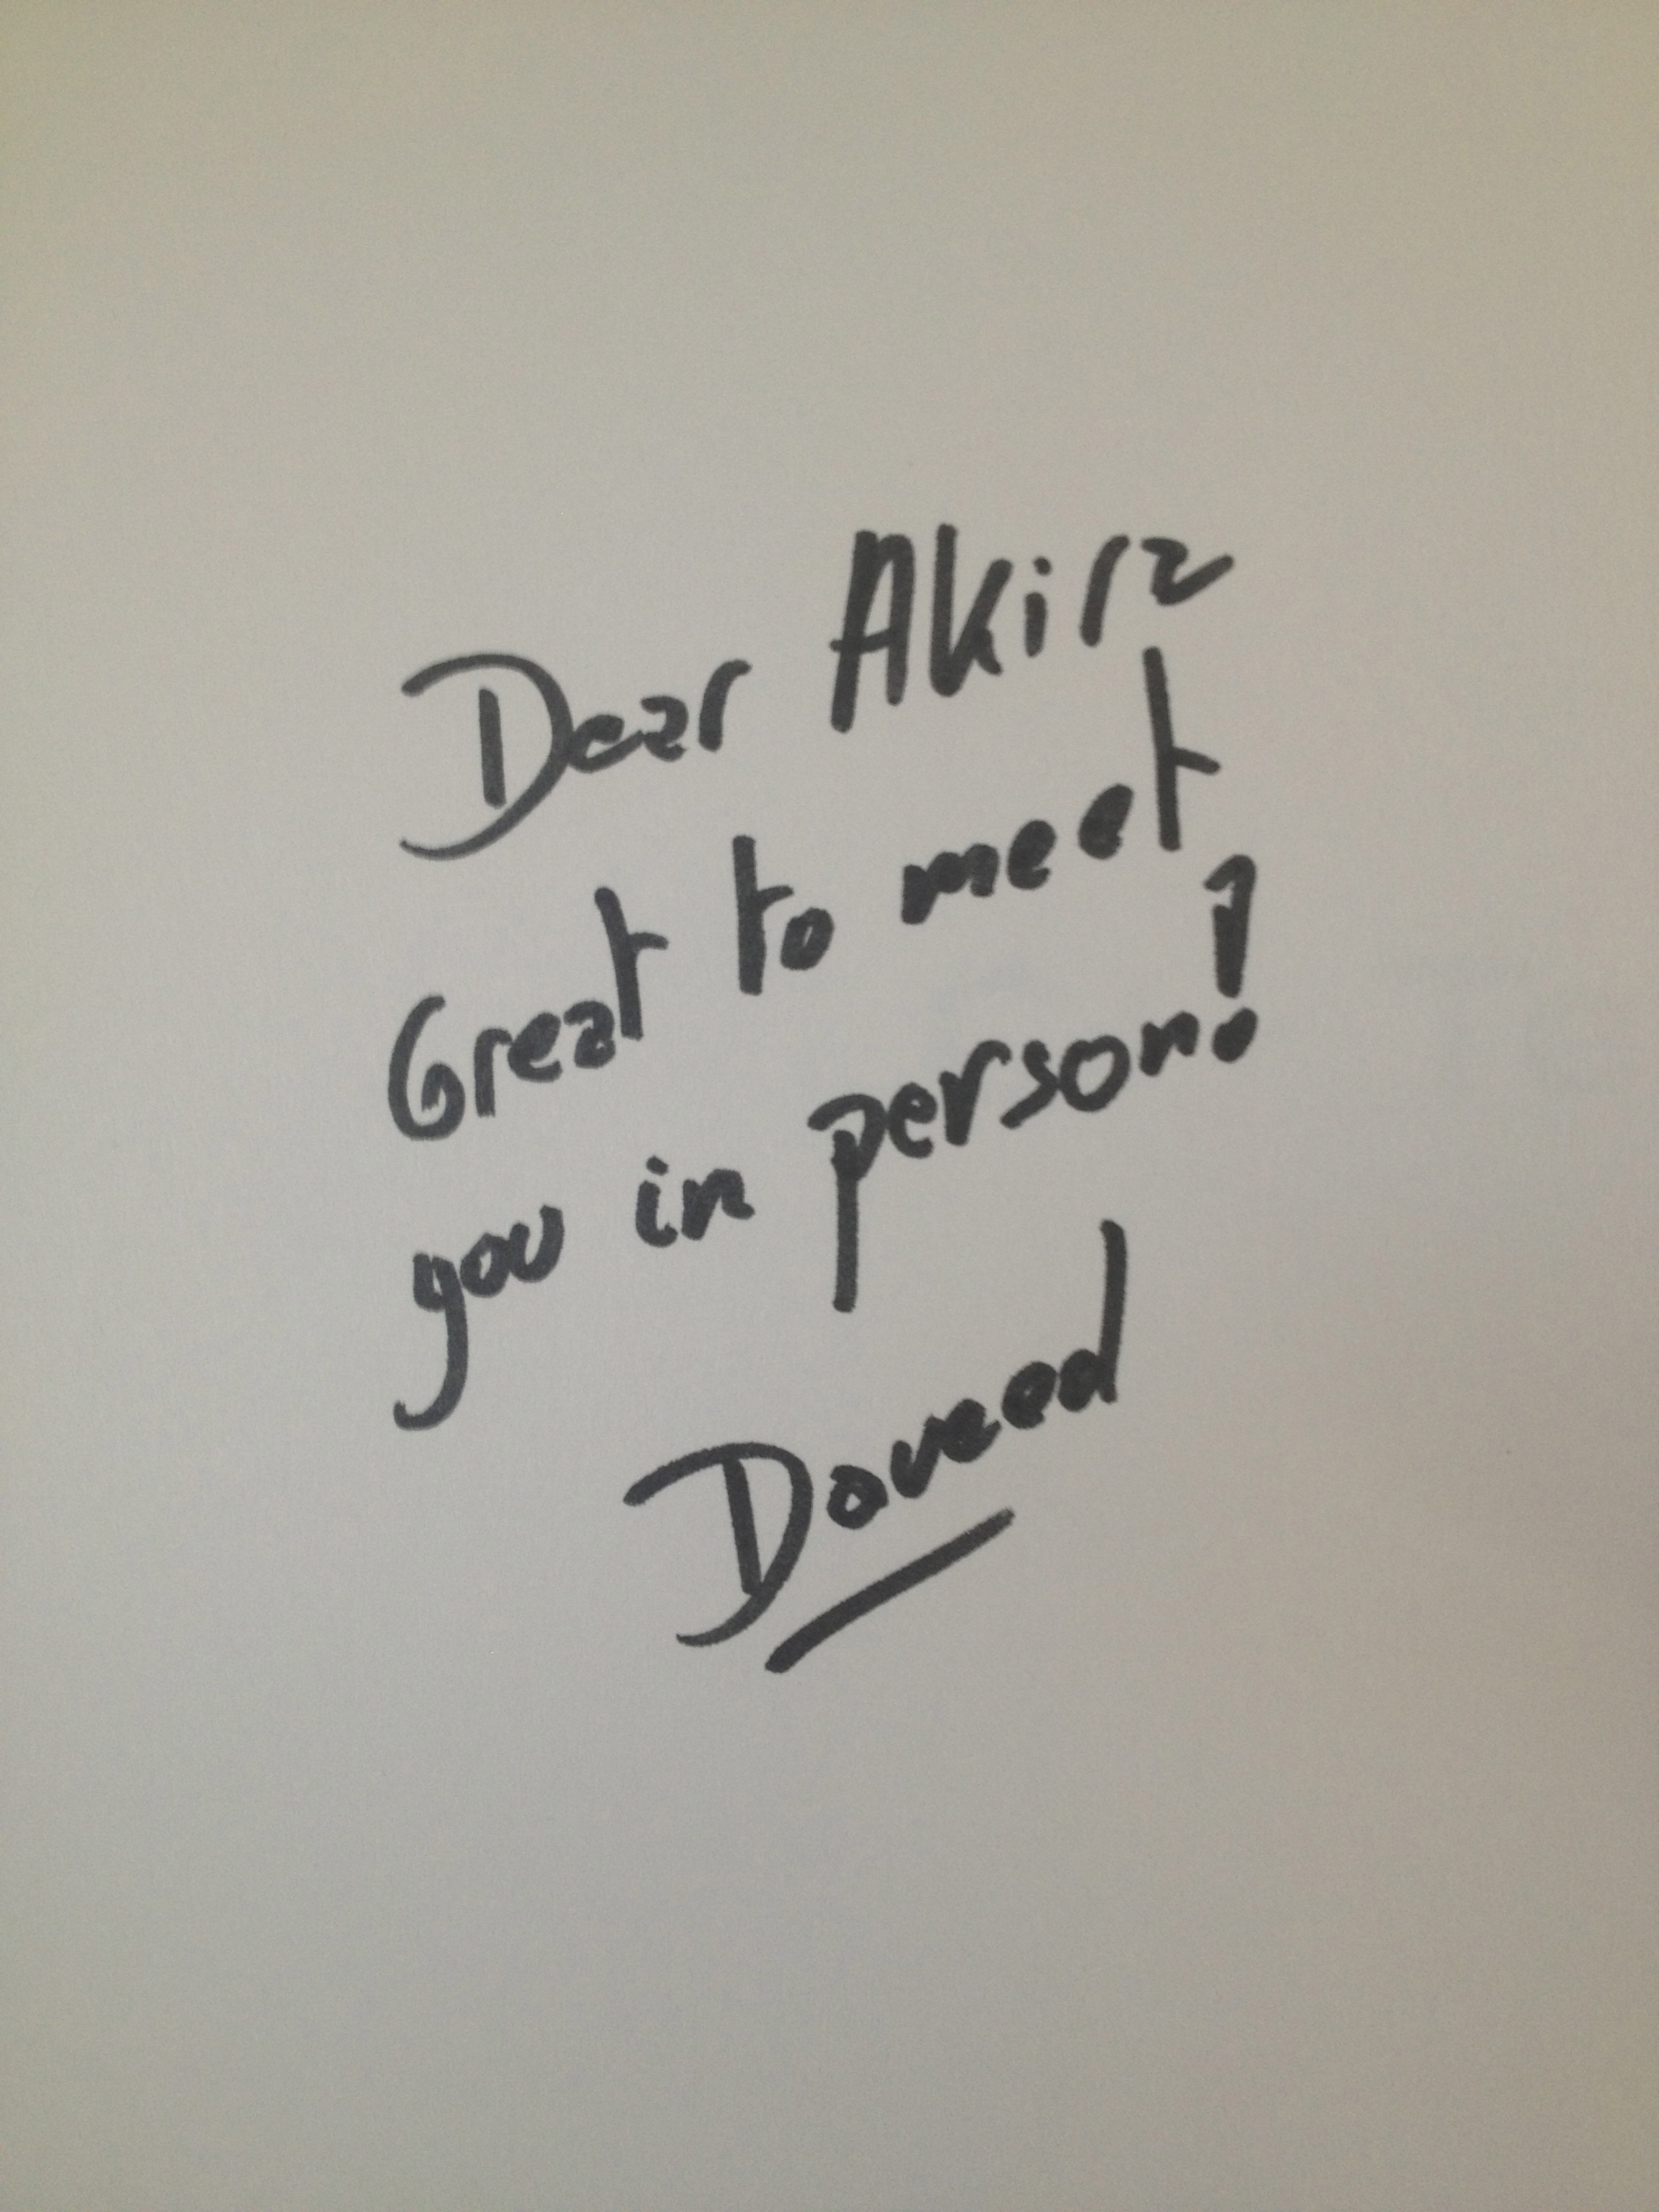 Dear Akira
Great to meet
you in person!
Daveed